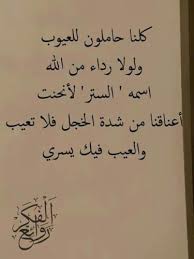 كلنا حاملون للعيوب
ولولا رداء من الله
اسمه ' الستر ' لأنحنت
أعناقنا من شدة الخجل فلا تعيب
والعيب فيك يسري
روائع الفكر